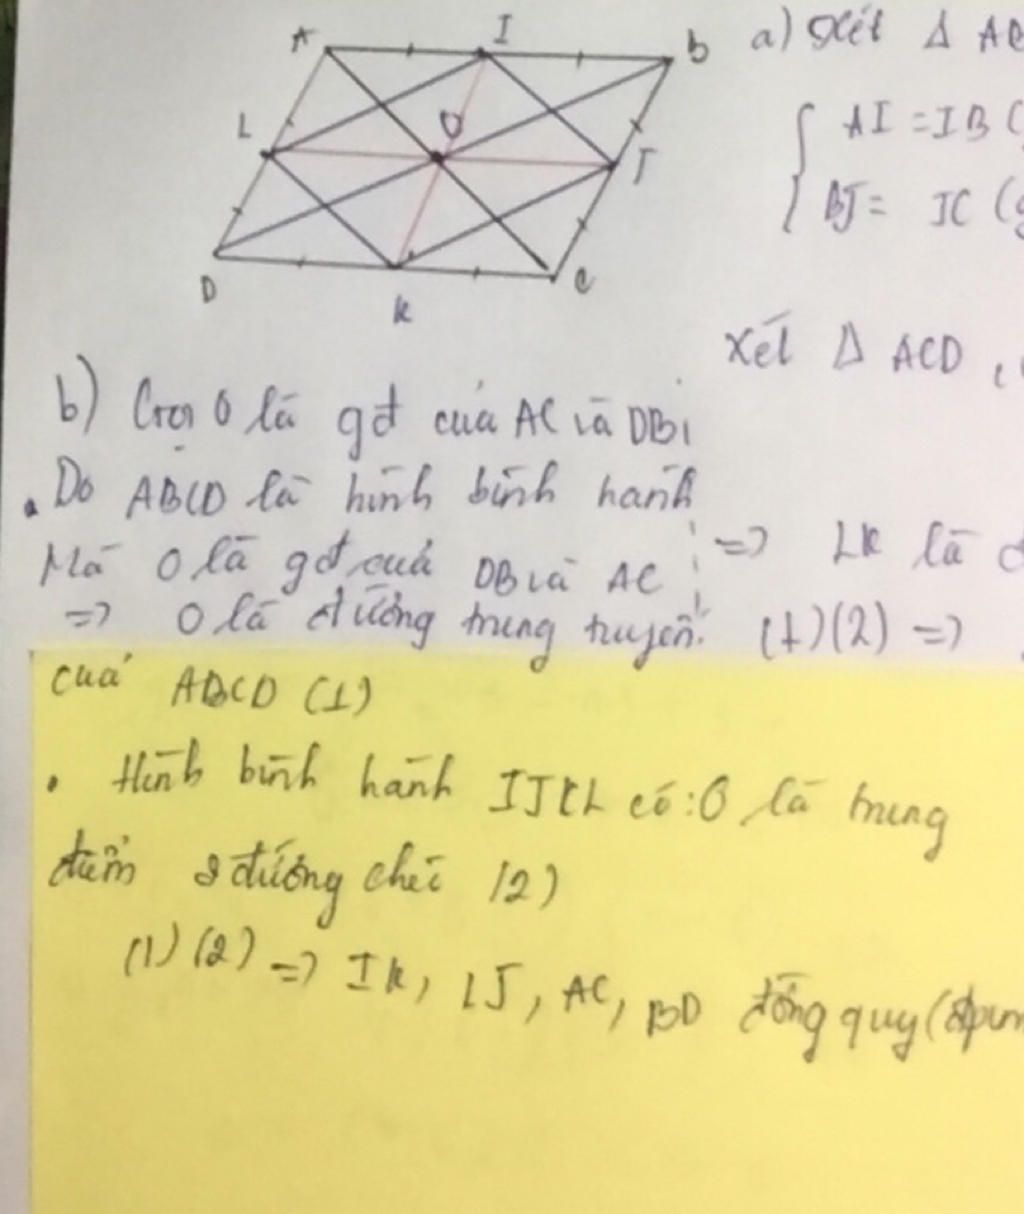 A I B
L O J
D K C
a) Xét Δ AB
AI = IB (
BJ = JC (g
Xét Δ ACD, (
=> LK là đ
(1)(2) =>
b) Gọi O là gđ của AC và DB,
. Do ABCD là hình bình hành
Mà O là gđ của DB và AC
=> O là đường trung truyến.
của ABCD (1)
. Hình bình hành IJKL có: O là trung
điểm 2 đường chéo (2)
(1) (2) => IK, LJ, AC, BD đồng quy (đpcm